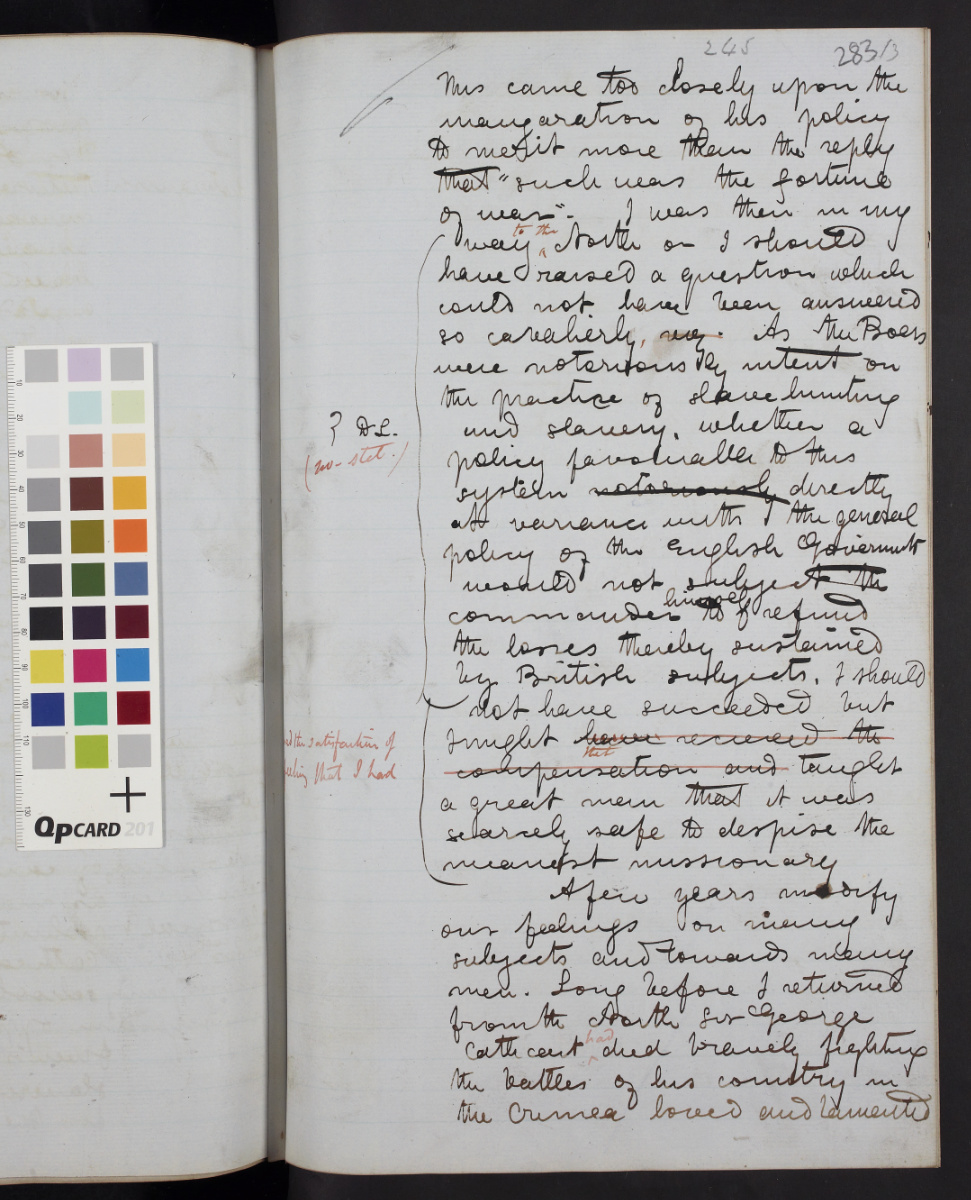 245
283/3
This came too closely upon the
inauguration of his policy
to merit more than the reply
that "such was the fortune
of war". I was then in my
way to the North or I should
have raised a question which
could not have been answered
so cavalierly, viz. As the Boers
were notoriously intent on
the practice of slave hunting
and slavery, whether a
? DL.
(no - stet.)
policy favourable to this
system notoriously directly
at variance with the general
policy of the English Government
would not subject the
commander himself to refund
the losses thereby sustained
by British subjects. I should
not have succeeded but
might have received the
compensation and that taught
and the satisfaction of
feeling that I had
a great man that it was
scarcely safe to despise the
meanest missionary
A few years modify
our feelings on many
subjects and towards many
men. Long before I returned
from the North Sir George
Cathcart had died bravely fighting
the battles of his country in
the Crimea loved and lamented
10
20
30
40
50
60
70
80
90
100
110
130
QPCARD 201